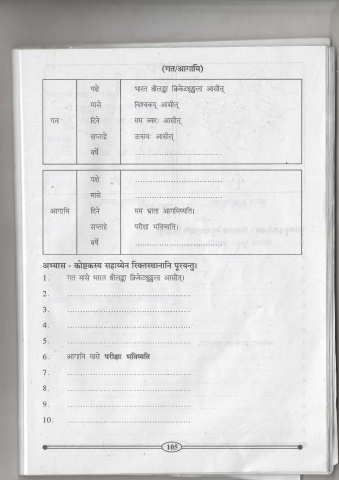 (गत/आगामि)
पक्षे भारत श्रीलङ्का क्रिकेटशृङ्खला आसीत्
मासे विश्वकप् आसीत्
गत दिने मम ज्वरः आसीत्
सप्ताहे उत्सवः आसीत्
वर्षे ................................
पक्षे ................................
मासे ................................
आगामि दिने मम भ्राता आगमिष्यति।
सप्ताहे परीक्षा भविष्यति।
वर्षे ................................
अभ्यास - कोष्टकस्य सहाय्येन रिक्तस्थानानि पूरयन्तु।
1. गत मासे भारत श्रीलङ्का क्रिकेटशृङ्खला आसीत्।
2. ................................
3. ................................
4. ................................
5. ................................
6. आगामि मासे परीक्षा भविष्यति
7. ................................
8. ................................
9. ................................
10. ................................
105